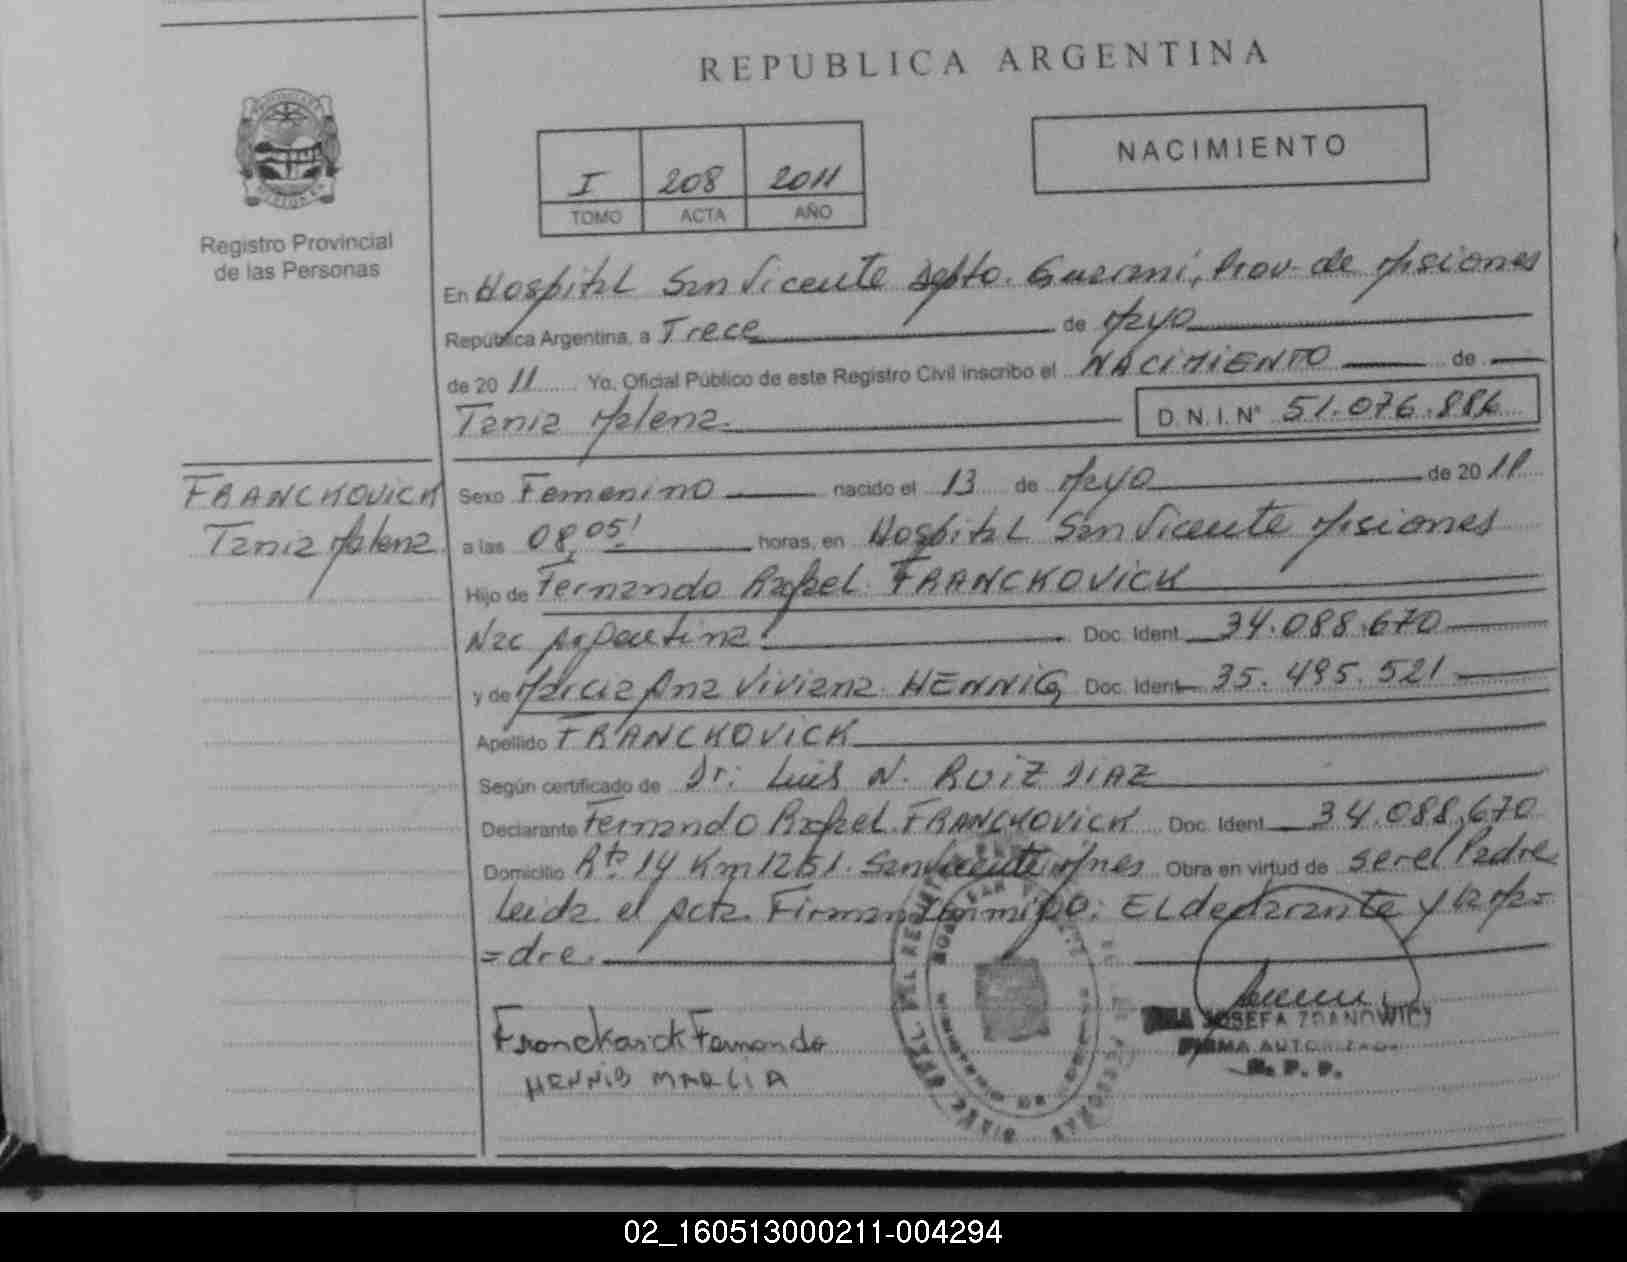 REPUBLICA ARGENTINA
NACIMIENTO
I 208 2011
TOMO ACTA AÑO
Registro Provincial
de las Personas
En Hospital San Vicente Dpto. Guarani, Prov. de Misiones
República Argentina, a Trece de Mayo
de 20 11 Yo, Oficial Público de este Registro Civil inscribo el NACIMIENTO de
Tania Malena D.N.I. N° 51.076.886
FRANCKOVICK
Tania Malena
Sexo Femenino nacido el 13 de Mayo de 20 11
a las 08,05' horas, en Hospital San Vicente Misiones
Hijo de Fernando Rafael FRANCKOVICK
Nac Argentina Doc. Ident. 34.088.670
y de Marcia Ana Viviana HENNIG Doc. Ident. 35.495.521
Apellido FRANCKOVICK
Según certificado de Dr. Luis N. RUIZ DIAZ
Declarante Fernando Rafael FRANCKOVICK Doc. Ident. 34.088.670
Domicilio Rta 14 Km 1251. San Vicente Mnes Obra en virtud de ser el Padre
Leida el Acta. Firman conmigo: EL declarante y la Ma=
=dre.
Franckovick Fernando
HENNIG MARCIA
JOSEFA ZDANOWICZ
FIRMA AUTORIZADA
R. P. P.
02_160513000211-004294